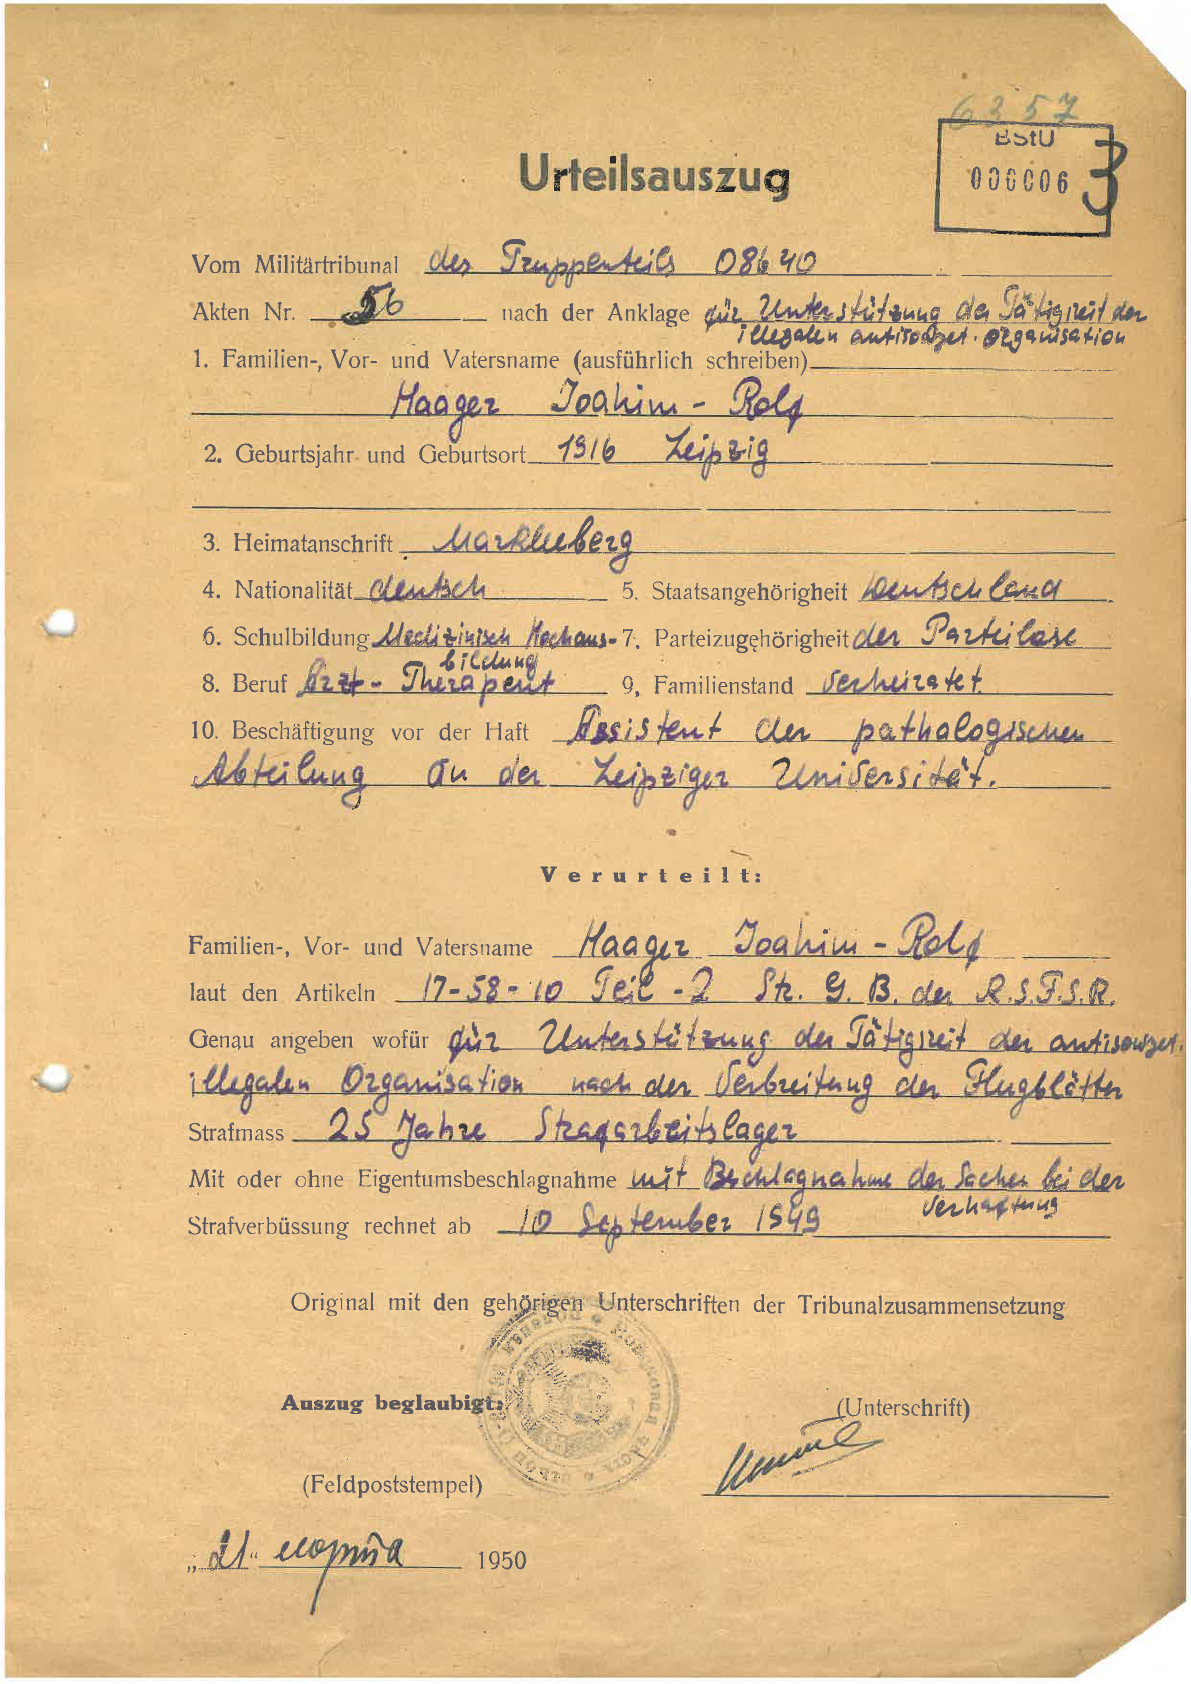 6357
BStU
000006
3
Urteilsauszug
Vom Militärtribunal des Truppenteils 08640
Akten Nr. 56 nach der Anklage für Unterstützung der Tätigkeit der
illegalen antisowjet. Organisation
1. Familien-, Vor- und Vatersname (ausführlich schreiben)
Haager Joahim - Rolf
2. Geburtsjahr und Geburtsort 1916 Leipzig
3. Heimatanschrift Markleeberg
4. Nationalität deutsch 5. Staatsangehörigheit Deutschland
6. Schulbildung Medizinisch Hochaus- 7. Parteizugehörigheit der Parteilose
bildung
8. Beruf Arzt - Therapeut 9. Familienstand verheiratet
10. Beschäftigung vor der Haft Assistent der pathologischen
Abteilung an der Leipziger Universität.
Verurteilt:
Familien-, Vor- und Vatersname Haager Joahim - Rolf
laut den Artikeln 17-58-10 Teil -2 Str. G. B. der R.S.F.S.R.
Genau angeben wofür für Unterstützung der Tätigkeit der antisowjet.
illegalen Organisation nach der Verbreitung der Flugblätter
Strafmass 25 Jahre Strafarbeitslager
Mit oder ohne Eigentumsbeschlagnahme mit Beschlagnahme der Sachen bei der
Verhaftung
Strafverbüssung rechnet ab 10 September 1949
Original mit den gehörigen Unterschriften der Tribunalzusammensetzung
Auszug beglaubigt:
(Unterschrift)
(Feldpoststempel)
„21“ марта 1950